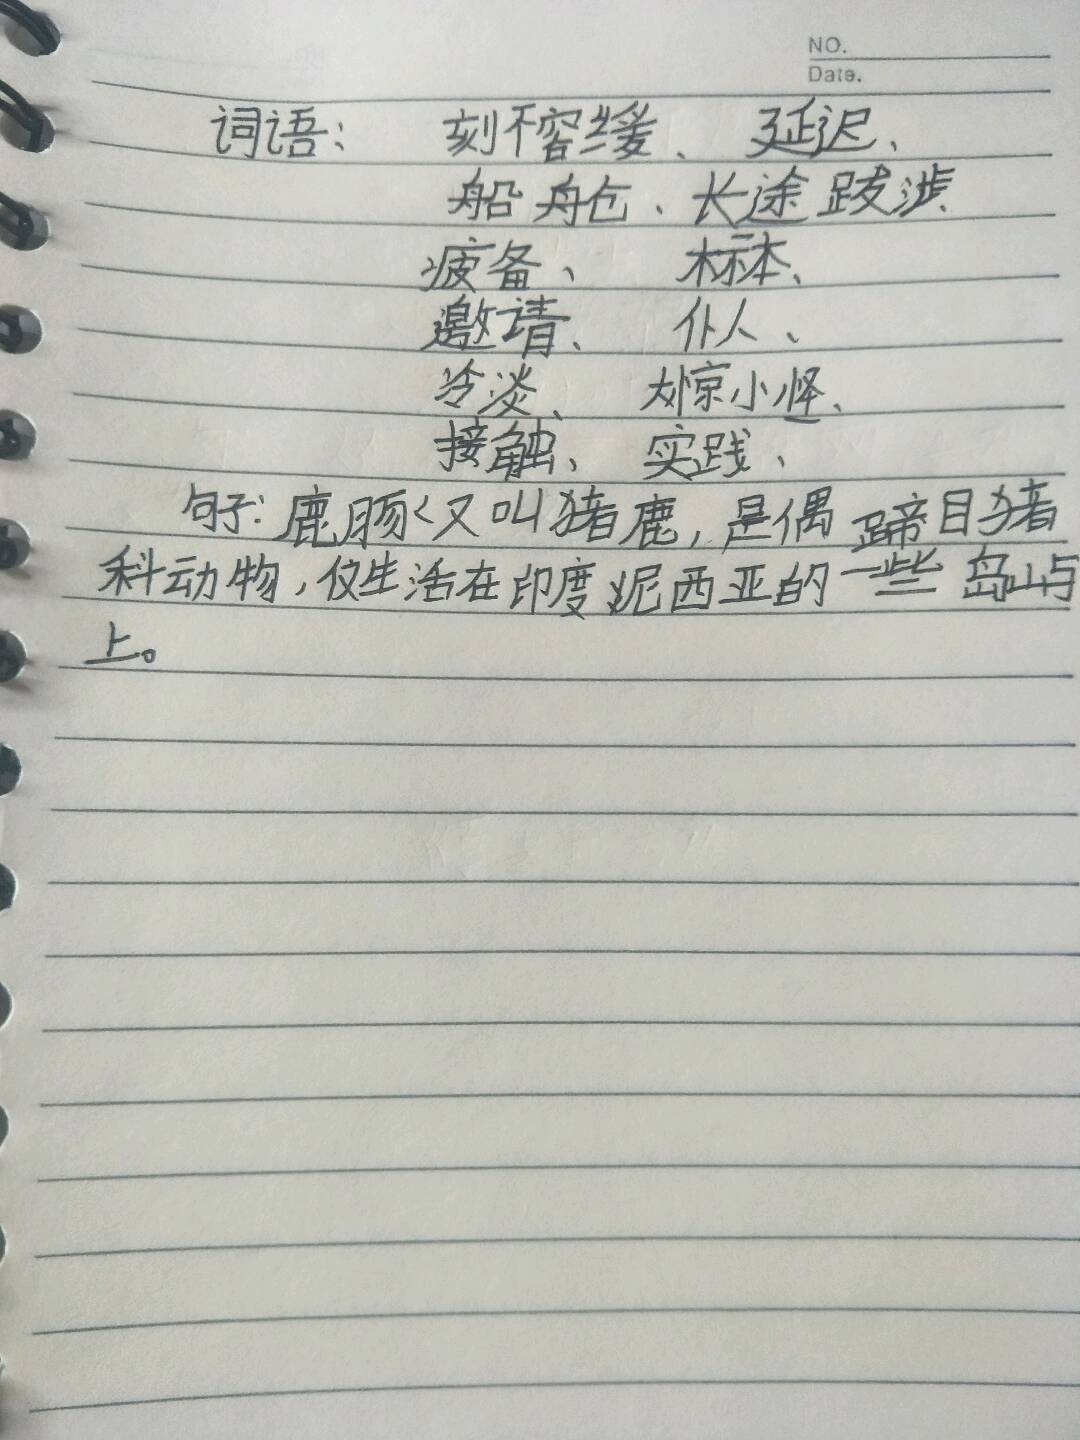 NO.
Date.
词语： 刻不容缓、 延迟、
船舟仓、长途跋涉
疲备、 标本、
邀请、 仆人、
冷淡、 大惊小怪、
接触、 实践、
句子：鹿肠〈又叫猪鹿，是偶蹄目猪
科动物，仅生活在印度妮西亚的一些岛山与
上。